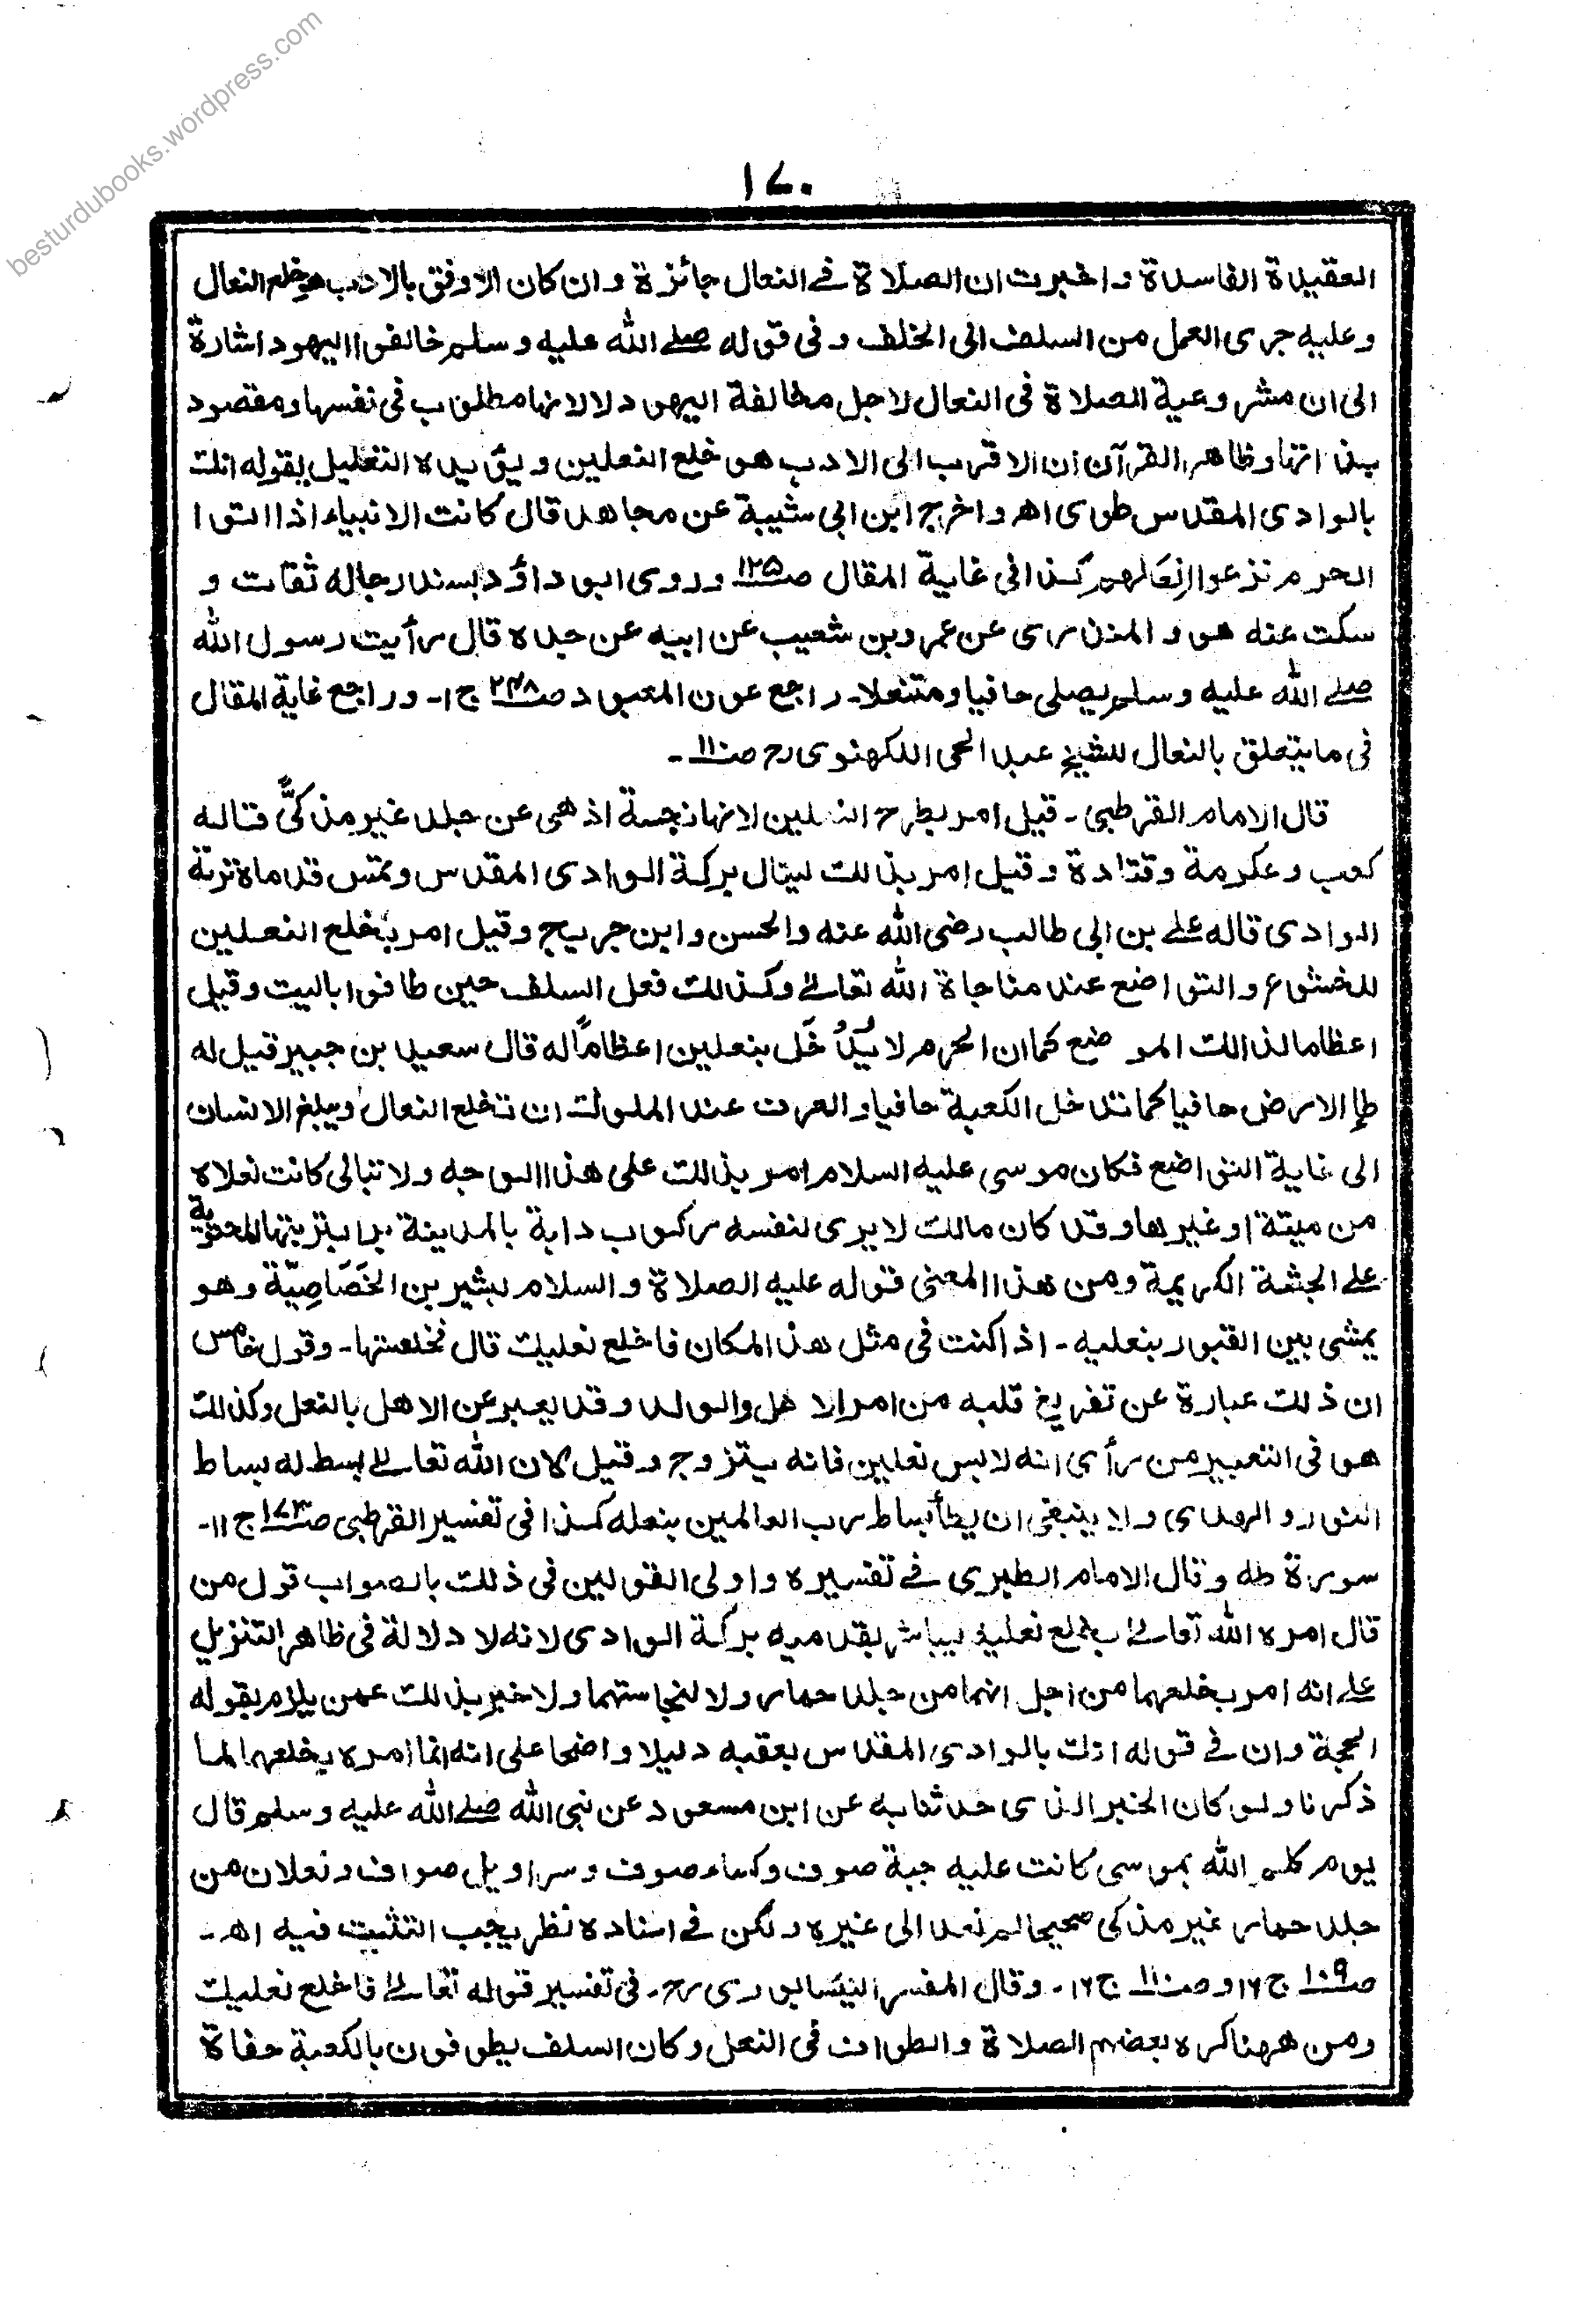 besturdubooks.wordpress.com
١٧٠
العقيدة الفاسدة واخبرت ان الصلاة في النعال جائزة وان كان الاوفق بالادب هو خلع النعال
وعليه جرى العمل من السلف الى الخلف وفى قوله صلے الله عليه وسلم خالفوا اليهود اشارة
الى ان مشروعية الصلاة فى النعال لاجل مخالفة اليهود لا لانها مطلوب فى نفسها ومقصود
بذاتها وظاهر القرآن ان الاقرب الى الادب هو خلع النعلين ويؤيده التعليل بقوله انك
بالوادى المقدس طوى اهـ واخرج ابن ابى شيبة عن مجاهد قال كانت الانبياء اذا اتوا
الحرم نزعوا نعالهم كذا فى غاية المقال صـ١٢٥ وروى ابو داؤد بسند رجاله ثقات و
سكت عنه هو والمنذرى عن عمرو بن شعيب عن ابيه عن جده قال رأيت رسول الله
صلے الله عليه وسلم يصلى حافيا ومتنعلا۔ راجع عون المعبود صـ٢٤٨ ج١۔ وراجع غاية المقال
فى ما يتعلق بالنعال للشيخ عبد الحى اللكهنوى رح صـ١١ ۔
قال الامام القرطبى ۔ قيل امر بطرح النعلين لانها نجسة اذ هى عن جلد غير مذكىًّ قاله
كعب وعكرمة وقتادة وقيل امر بذلك لينال بركة الوادى المقدس وتمس قدماه تربة
الوادى قاله علے بن ابى طالب رضى الله عنه والحسن وابن جريج وقيل امر بخلع النعلين
للخشوع والتواضع عند مناجاة الله تعالے وكذلك فعل السلف حين طافوا بالبيت وقيل
اعظاما لذالك الموضع كما ان الحرم لا يُدْخَل بنعلين اعظاماً له قال سعيد بن جبير قيل له
طإ الارض حافيا كما تدخل الكعبة حافيا والعرف عند الملوك ان تخلع النعال ويبلغ الانسان
الى غاية التواضع فكان موسى عليه السلام امر بذلك على هذا الوجه ولا تبالى كانت نعلاه
من ميتة او غيرها وقد كان مالك لا يرى لنفسه ركوب دابة بالمدينة برا بتربتها المحتوية
علے الجثة الكريمة ومن هذا المعنى قوله عليه الصلاة والسلام لبشير بن الخَصَاصِيّة وهو
يمشى بين القبور بنعليه ۔ اذا كنت فى مثل هذا المكان فاخلع نعليك قال فخلعتها۔ وقول خامس
ان ذلك عبارة عن تفريغ قلبه من امر الاهل والولد وقد يعبر عن الاهل بالنعل وكذلك
هو فى التعبير من رأى انه لابس نعلين فانه يتزوج وقيل لان الله تعالے بسط له بساط
النور والهدى ولا ينبغى ان يطأ بساط رب العالمين بنعله كذا فى تفسير القرطبى صـ١٧٣ ج ١١۔
سورة طه وقال الامام الطبرى فے تفسيره واولى القولين فى ذلك بالصواب قول من
قال امره الله تعالے بخلع نعليه ليباشر بقدميه بركة الوادى لانه لا دلالة فى ظاهر التنزيل
علے انه امر بخلعهما من اجل انهما من جلد حمار ولا لنجاستهما ولا خبر بذلك عمن يلزم بقوله
الحجة وان فے قوله انك بالوادى المقدس بعقبه دليلا واضحا على انه انما امره بخلعهما لما
ذكرنا ولو كان الخبر الذى حدثنا به عن ابن مسعود عن نبى الله صلے الله عليه وسلم قال
يوم كلم الله موسى كانت عليه جبة صوف وكساء صوف وسراويل صوف ونعلان من
جلد حمار غير مذكى صحيحا لم نعد الى غيره ولكن فے اسناده نظر يجب التثبت فيه اهـ۔
صـ١٠٩ ج ١٦ و صـ١١ ج ١٦۔ وقال المفسر النيسابورى رح۔ فى تفسير قوله تعالے فاخلع نعليك
ومن ههنا كره بعضهم الصلاة والطواف فى النعل وكان السلف يطوفون بالكعبة حفاة